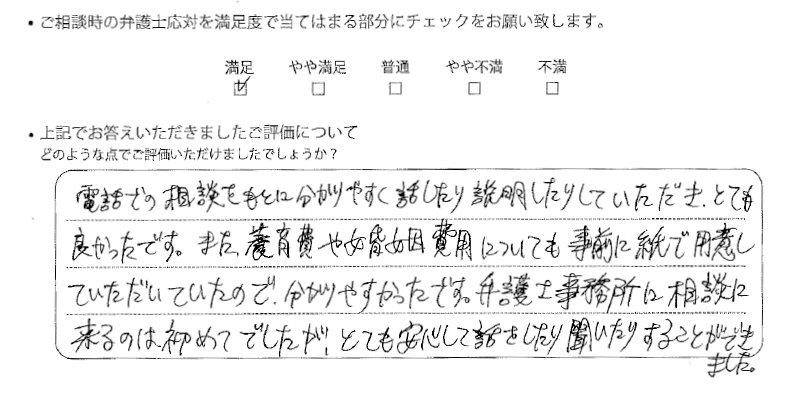 ・ご相談時の弁護士応対を満足度で当てはまる部分にチェックをお願い致します。
満足 やや満足 普通 やや不満 不満
・上記でお答えいただきましたご評価について
どのような点でご評価いただけましたでしょうか？
電話での相談をもとに分かりやすく話したり説明したりしていただき、とても
良かったです。また、養育費や婚姻費用についても事前に紙で用意し
ていただいていたので、分かりやすかったです。弁護士事務所に相談に
来るのは初めてでしたが、とても安心して話をしたり聞いたりすることができ
ました。